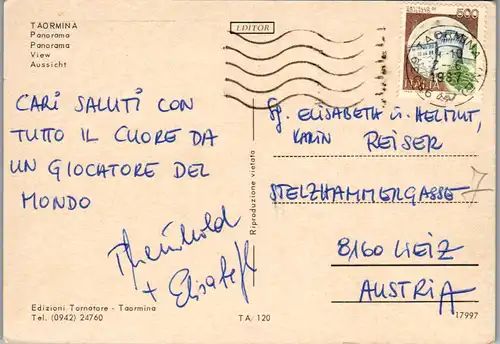 TAORMINA
Panorama
Panorama
View
Aussicht
EDITOR
500
TAORMINA
1987
CARI SALUTI CON
TUTTO IL CUORE DA
UN GIOCATORE DEL
MONDO
+ Elisabeth
ELISABETH U. HELMUT,
KARIN REISER
STELZHAMMERGASSE 7
8160 WEIZ
AUSTRIA
Riproduzione vietata
Edizioni Tornatore - Taormina
Tel. (0942) 24760
TA/120
17997